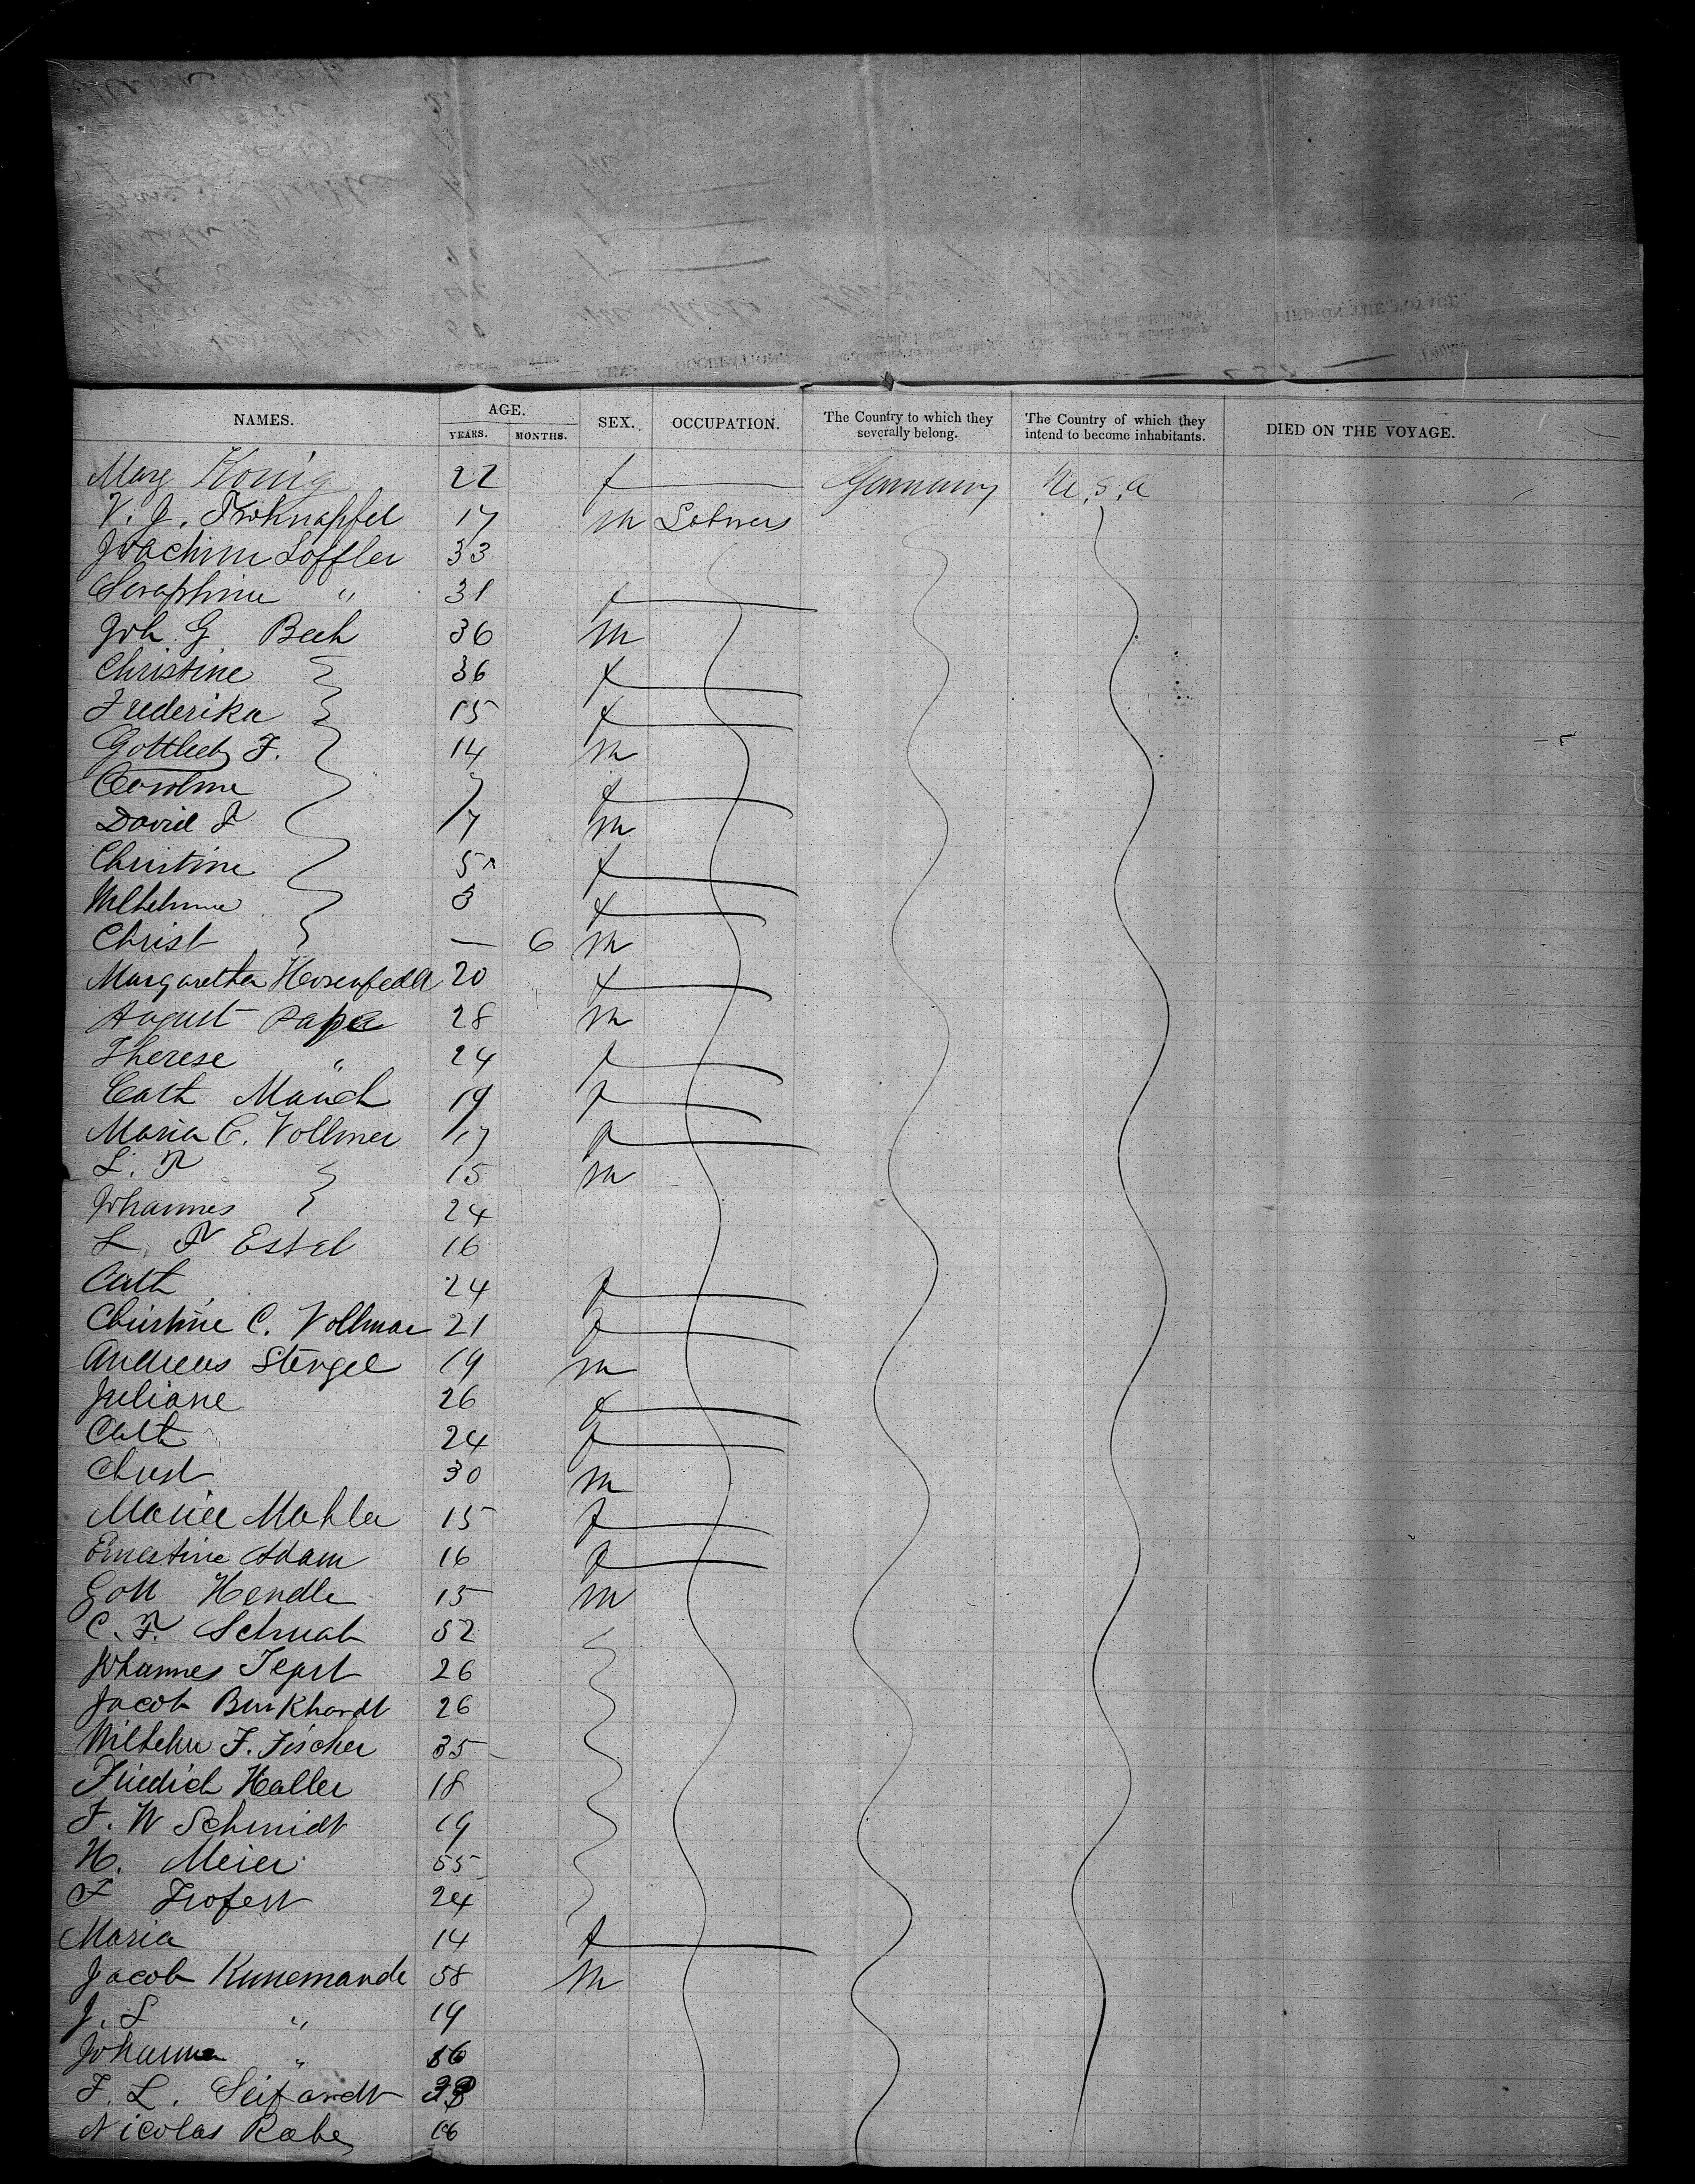 NAMES. AGE. SEX. OCCUPATION. The Country to which they severally belong. The Country of which they intend to become inhabitants. DIED ON THE VOYAGE.
YEARS. MONTHS.
Marg König 22 f Germany U.S.A
V. J. 17 m
Joachim Löffler 33
Seraphine " 31 f
Joh. G Beck 36 m
Christine 36 f
Frederika 15 f
Gottlieb F. 14 m
Caroline f
David F 7 m
Christine 5 f
Wilhelmine 3 f
Christ — 6 m
Margaretha 20 f
August Pape 28 m
Therese " 24 f
Cath Mauch 19 f
Maria C. Vollmer 17 f
L. F 15 m
Johannes 24
L. F Essel 16
Cath 24 f
Christine C. Vollmar 21 f
Andreas Stengel 19 m
Juliane 26 f
Cath 24 f
Christ 30 m
Mariee Mahler 15 f
Ernestine Adam 16 f
Gott Hendle 15 m
C. F. Schwab 52
Johannes 26
Jacob Burkhardt 26
Wilhelm F. Fischer 35
Friedich Haller 18
F. W Schmidt 19
H. Meier 55
F 24
Maria 14 f
Jacob Kunemande 58 m
J. S " 19
Johanne " 16
F. L. Seifardt
Nicolas Rabe 16